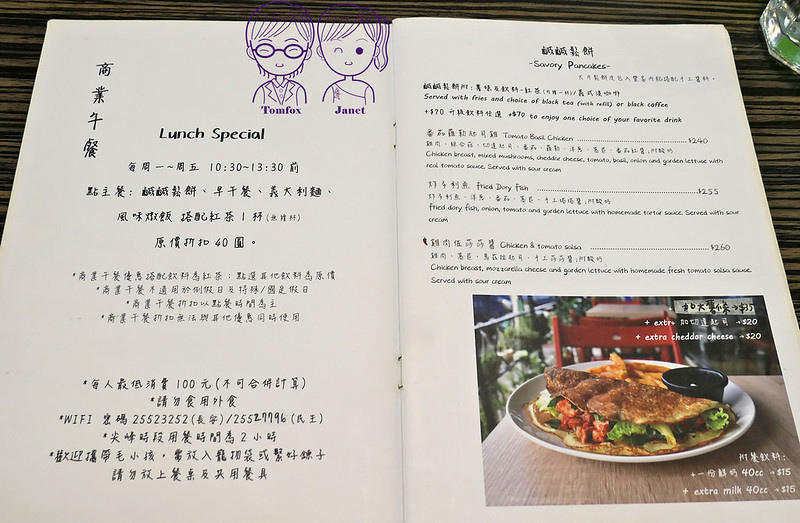 Tomfox
Janet
商業午餐
Lunch Special
每周一~周五 10:30~13:30 前
點主餐: 鹹鹹鬆餅、早午餐、義大利麵、
風味燉飯 搭配紅茶1杯(無續杯)
原價折扣 40 圓。
*商業午餐優惠搭配飲料為紅茶;點選其他飲料為原價
*商業午餐不適用於例假日及特殊/國定假日
*商業午餐折扣以點餐時間為主
*商業午餐折扣無法與其他優惠同時使用
*每人最低消費 100 元(不可合併計算)
*請勿食用外食
*WIFI 密碼 25523252(長安)/25527796(民生)
*尖峰時段用餐時間為 2 小時
*歡迎攜帶毛小孩,需放入寵物袋或繫好鍊子
請勿放上餐桌及共用餐具
鹹鹹鬆餅
-Savory Pancakes-
鹹鹹鬆餅附:薯條及飲料-紅茶(可續一杯)/美式淡咖啡
Served with fries and choice of black tea (with refill) or black coffee
+$70 升級飲料任選 +$70 to enjoy one choice of your favorite drink
番茄羅勒起司雞 Tomato Basil Chicken $240
雞肉、綜合菇、切達起司、番茄、羅勒、洋蔥、萵苣、番茄紅醬;附酸奶
Chicken breast, mixed mushrooms, cheddar cheese, tomato, basil, onion and garden lettuce with
real tomato sauce. Served with sour cream
炸多利魚 Fried Dory fish $255
炸多利魚、洋蔥、番茄、萵苣、手工塔塔醬;附酸奶
Fried dory fish, onion, tomato and garden lettuce with homemade tartar sauce. Served with sour
cream
雞肉佐莎莎醬 Chicken & tomato salsa $260
雞肉、萵苣、馬茲拉起司、手工莎莎醬;附酸奶
Chicken breast, mozzarella cheese and garden lettuce with homemade fresh tomato salsa sauce.
Served with sour cream
+ extra 加切達起司 →$20
+ extra cheddar cheese →$20
附餐飲料:
+一份鮮奶 40cc →$15
+ extra milk 40cc →$15